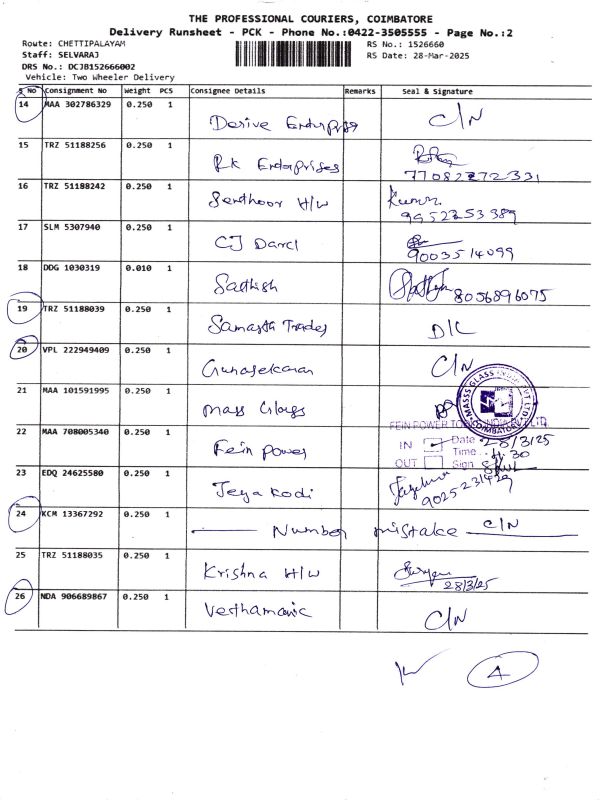 THE PROFESSIONAL COURIERS, COIMBATORE
Delivery Runsheet - PCK - Phone No.:0422-3505555 - Page No.:2
Route: CHETTIPALAYAM RS No.: 1526660
Staff: SELVARAJ RS Date: 28-Mar-2025
DRS No.: DCJB152666002
Vehicle: Two Wheeler Delivery
S No Consignment No Weight PCS Consignee Details Remarks Seal & Signature
14 MAA 302786329 0.250 1 Derive Enterprise C/N
15 TRZ 51188256 0.250 1 RK Enterprises
7708272331
16 TRZ 51188242 0.250 1 Senthoor H/W Kumar
9952253389
17 SLM 5307940 0.250 1 CJ Darcl
9003514099
18 DDG 1030319 0.010 1 Sathish
8056896075
19 TRZ 51188039 0.250 1 Samasth Trades D/C
20 VPL 222949409 0.250 1 Gunasekaran C/N
21 MAA 101591995 0.250 1 Mass Glass
MASSS GLASS COIMBATORE
FEIN POWER
22 MAA 708005340 0.250 1 Fein power IN Date 28/3/25
Time 4.30
OUT Sign
23 EDQ 24625580 0.250 1 Jeyakodi
9025231429
24 KCM 13367292 0.250 1 Number mistake C/N
25 TRZ 51188035 0.250 1 Krishna H/W
28/3/25
26 NDA 906689867 0.250 1 C/N
4